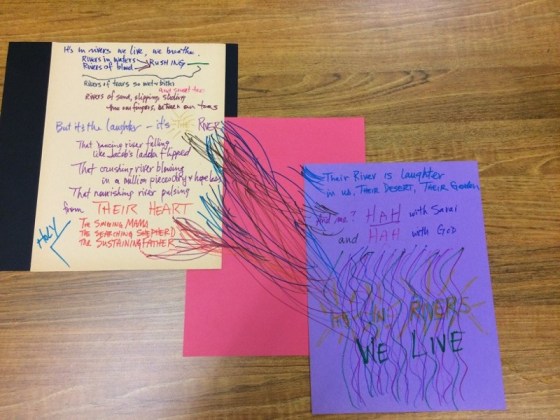 It's in rivers we live, we breathe.
Rivers in waters RUSHING
Rivers of blood
Rivers of tears so wet + bitter
and sweet too
Rivers of sand, slipping, sliding
thru our fingers, between our toes
But it's the laughter - it's RIVER
That dancing river falling
like Jacob's ladder flipped
That crushing river blowing
in a million piece
That nourishing river pulsing
from THEIR HEART
THE SINGING MAMA
THE SEARCHING SHEPHERD
THE SUSTAINING FATHER
HOLY
Their River is laughter
in us, THEIR DESERT, THEIR Garden
And me? HAH with Sarai
and HAH with GOD
RIVERS
WE LIVE